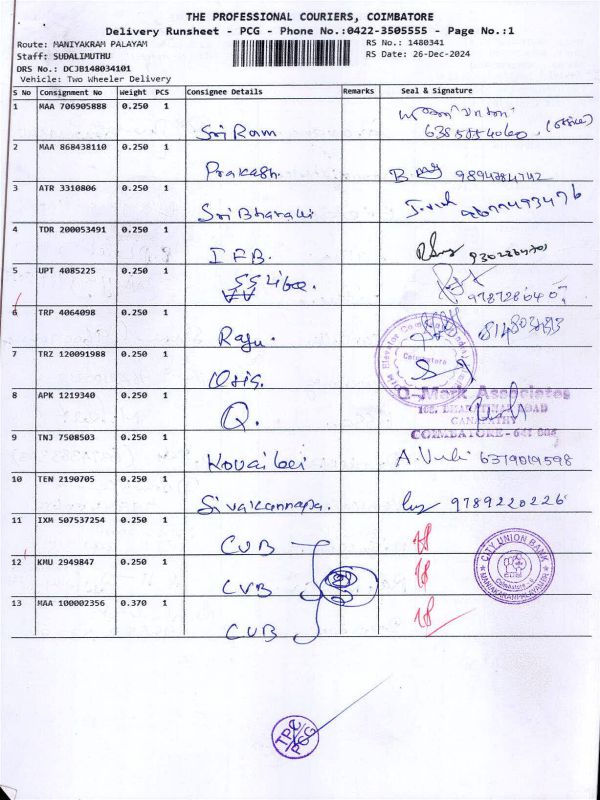 THE PROFESSIONAL COURIERS, COIMBATORE
Delivery Runsheet - PCG - Phone No.:0422-3505555 - Page No.:1
Route: MANIYAKRAM PALAYAM RS No.: 1480341
Staff: SUDALIMUTHU RS Date: 26-Dec-2024
DRS No.: DCJB148034101
Vehicle: Two Wheeler Delivery
S No Consignment No Weight PCS Consignee Details Remarks Seal & Signature
1 MAA 706905888 0.250 1 Sri Ram
2 MAA 868438110 0.250 1 Prakash. 9894284742
3 ATR 3310806 0.250 1
4 TDR 200053491 0.250 1 IFB.
5 UPT 4085225 0.250 1
6 TRP 4064098 0.250 1 Raju.
7 TRZ 120091988 0.250 1
8 APK 1219340 0.250 1 Q.
Q-Mark Associates
COIMBATORE - 641 006
9 TNJ 7508503 0.250 1 Kovai 6379019598
10 TEN 2190705 0.250 1 Sivakannapa. 9789220226
11 IXM 507537254 0.250 1 CUB
12 KMU 2949847 0.250 1 CUB
CITY UNION BANK
13 MAA 100002356 0.370 1 CUB
TPC
PCG